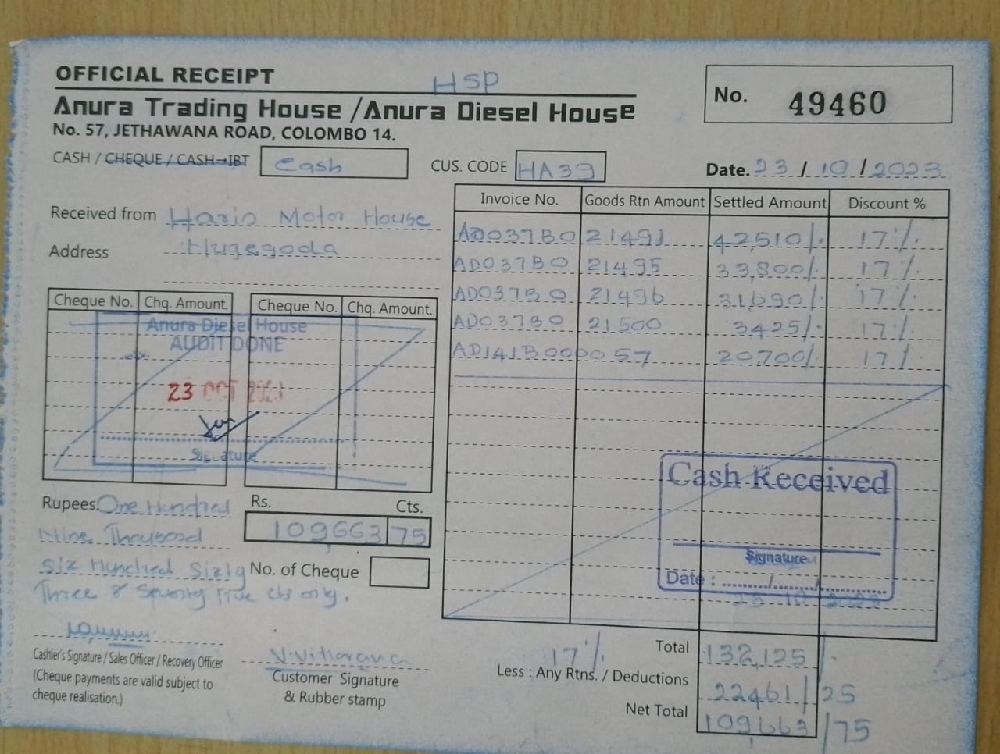 OFFICIAL RECEIPT
HSP
Anura Trading House / Anura Diesel House
No. 57, JETHAWANA ROAD, COLOMBO 14.
No. 49460
CASH / CHEQUE / CASH→IBT Cash
CUS. CODE HA39
Date. 23 / 10 / 2023
Received from Haris Motor House
Address
Invoice No. Goods Rtn Amount Settled Amount Discount %
AD037B0 21491 42510/. 17%
AD037B0 21495 33,800/. 17%
AD037B0 21496 31,690/. 17%
AD037B0 21500 3425/. 17%
AD141B0000 57 20700/. 17%
Cheque No. Chq. Amount. Cheque No. Chq. Amount.
Anura Diesel House
AUDIT DONE
23 OCT 2023
Signature
Cash Received
Signature
Date : ....../....../......
Rupees. One Hundred
Nine Thousand
Six Hundred Sixty
Three & Seventy five cts only.
Rs. Cts.
109663 75
No. of Cheque
Cashier's Signature / Sales Officer / Recovery Officer
(Cheque payments are valid subject to
cheque realisation.)
Customer Signature
& Rubber stamp
Total 132,125/.
17%
Less : Any Rtns. / Deductions 22461/25
Net Total 109663/75